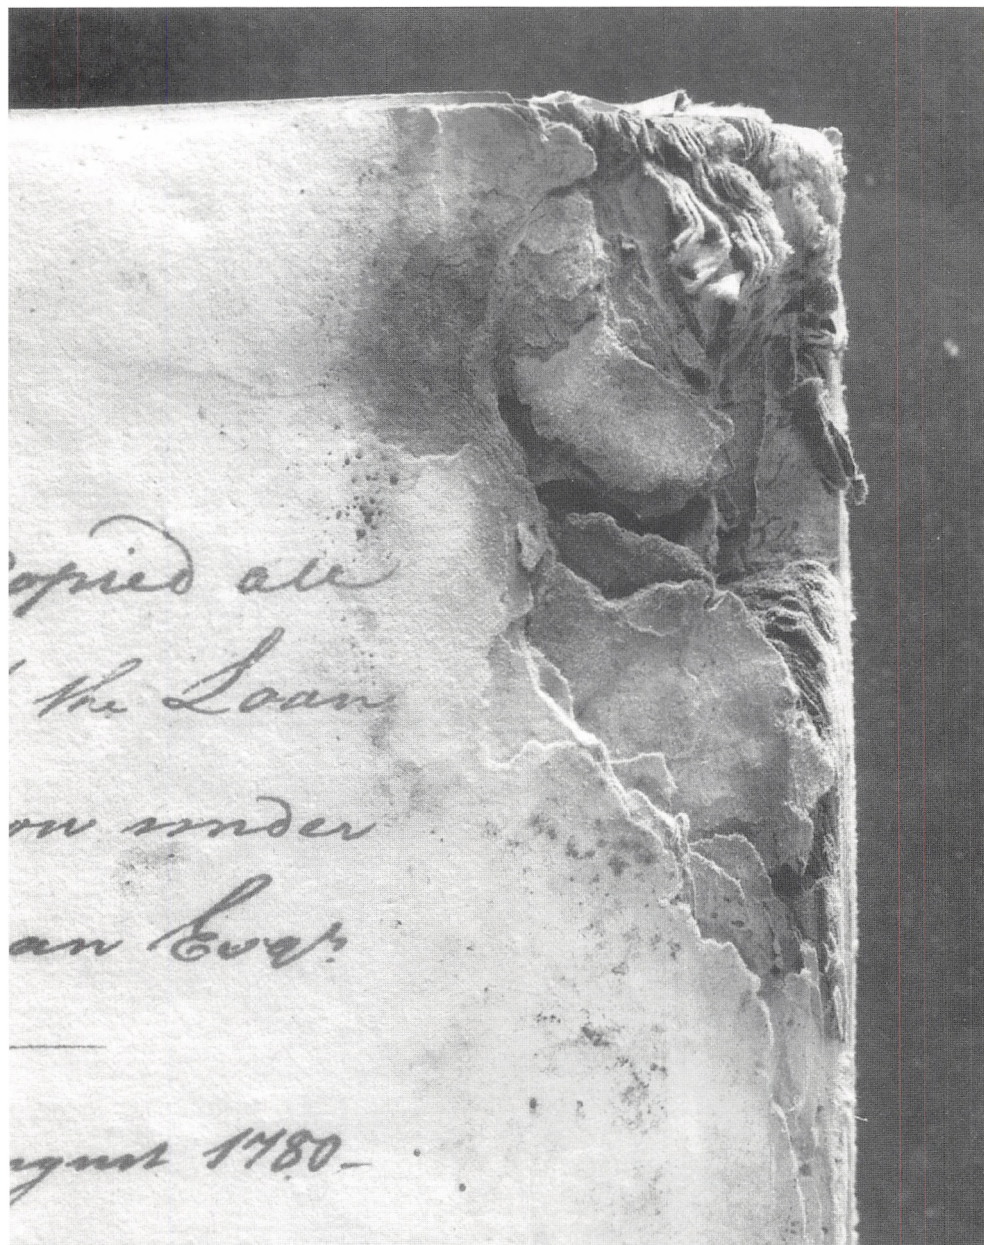 Copied all
the Loan
ow under
an Esqr.
ugust 1780-